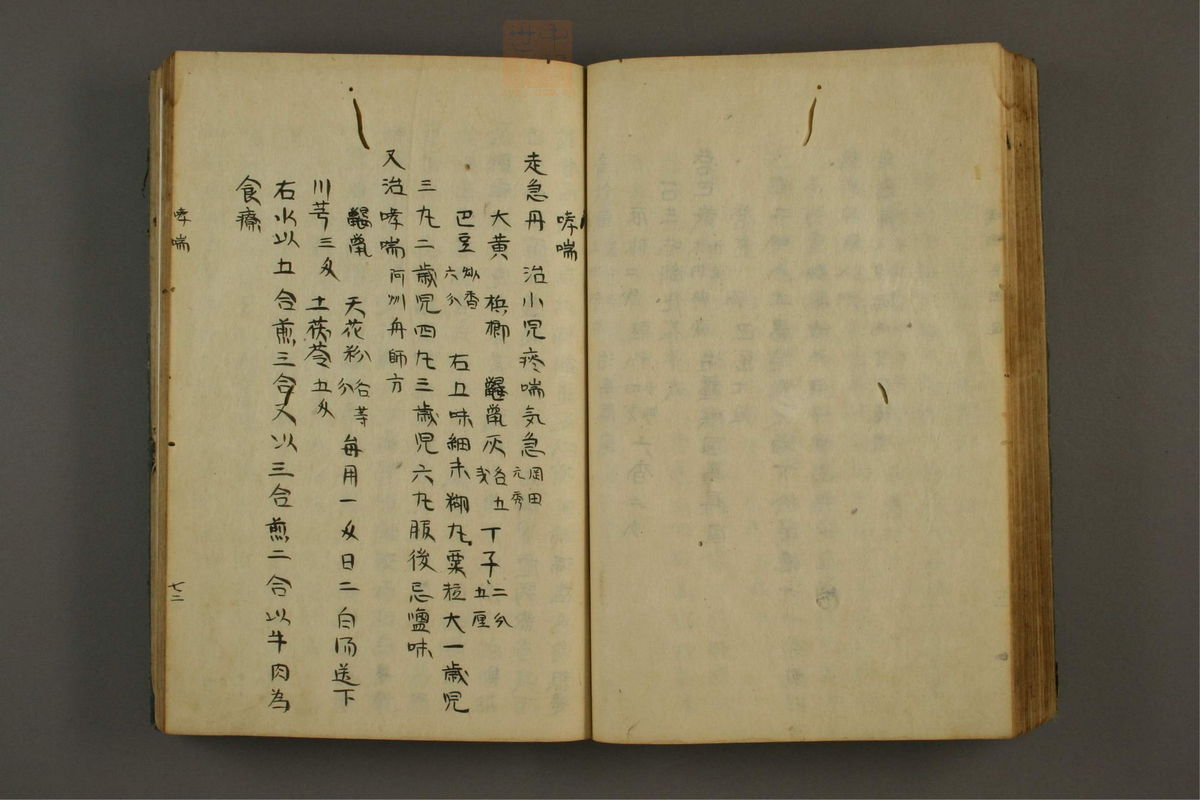 哮喘
走急丹 治小児痰喘気急 岡田元秀
大黄 梹榔 鼴鼠灰 各五 丁子 二分五厘
巴豆 六分 右五味細末糊丸粟粒大一歳児
三丸二歳児四丸三歳児六丸服後忌鹽味
又治哮喘 阿州舟師方
鼴鼠 天花粉 各等分 毎用一匁日二白湯送下
川芎三匁 土茯苓五匁
右水以五合煎三合又以三合煎二合以牛肉為
食療
哮喘
七二